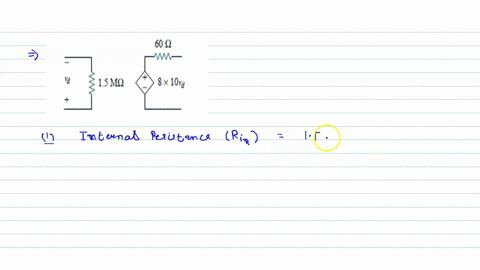 ⇒
60 Ω
−
+
vd
1.5 MΩ
+
−
8 × 10vd
+
(1) Internal Resistance (Rin) = 1.5